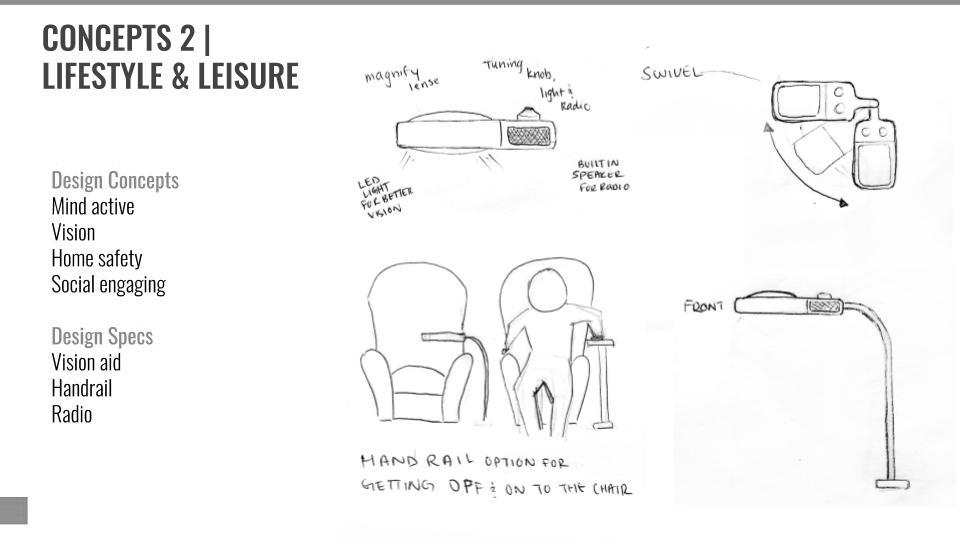 CONCEPTS 2 |
LIFESTYLE & LEISURE
Design Concepts
Mind active
Vision
Home safety
Social engaging
Design Specs
Vision aid
Handrail
Radio
magnify
lense
Tuning
knob,
light &
Radio
LED
LIGHT
FOR BETTER
VISION
BUILT IN
SPEAKER
FOR RADIO
SWIVEL
FRONT
HAND RAIL OPTION FOR
GETTING OFF & ON TO THE CHAIR